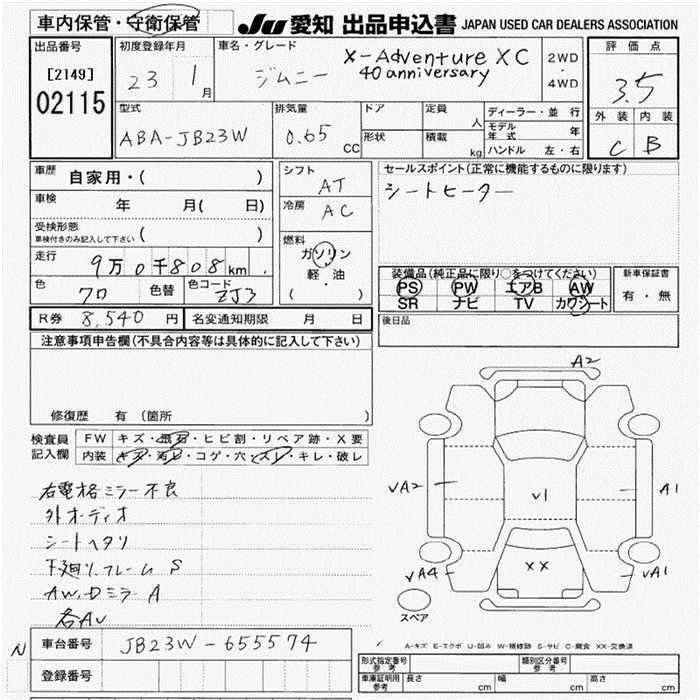 車内保管・守衛保管
JU 愛知 出品申込書 JAPAN USED CAR DEALERS ASSOCIATION
出品番号
[2149]
02115
初度登録年月
23 1月
車名・グレード
ジムニー
X-Adventure XC
40 anniversary
2WD
・
4WD
評価点
3.5
外装 内装
C B
型式
ABA-JB23W
排気量
0.65 CC
ドア
形状
定員 人
積載 kg
ディーラー・並行
モデル年式 年
ハンドル 左・右
車歴 自家用・( )
車検 年 月( 日)
受検形態
車検付きのみ記入して下さい ( )
走行 9万0千808km
色 クロ 色替 色コード ZJ3
シフト AT
冷房 AC
燃料
ガソリン
軽・油
( )
セールスポイント(正常に機能するものに限ります)
シートヒーター
装備品(純正品に限り○をつけてください)
PS PW エアB AW
SR ナビ TV カワシート
新車保証書
有・無
R券 8,540円 名変通知期限 月 日
後日品
注意事項申告欄(不具合内容等は具体的に記入して下さい)
修復歴 有(箇所 )
検査員記入欄
FW キズ・飛石・ヒビ割・リペア跡・X要
内装 キズ・汚レ・コゲ・穴・スレ・キレ・破レ
右電格ミラー不良
外オーディオ
シートヘタリ
下廻り、フレーム S
AW、Dミラー A
各AU
A2
VA2
V1
A1
XX
VA4
VA1
スペア
A-キズ E-エクボ U-凹み W-補修跡 S-サビ C-腐食 XX-交換済
N 車台番号 JB23W-655574
登録番号
形式指定番号 参考
類別区分番号 参考
車庫証明用 参考 長さ cm 幅 cm 高さ cm